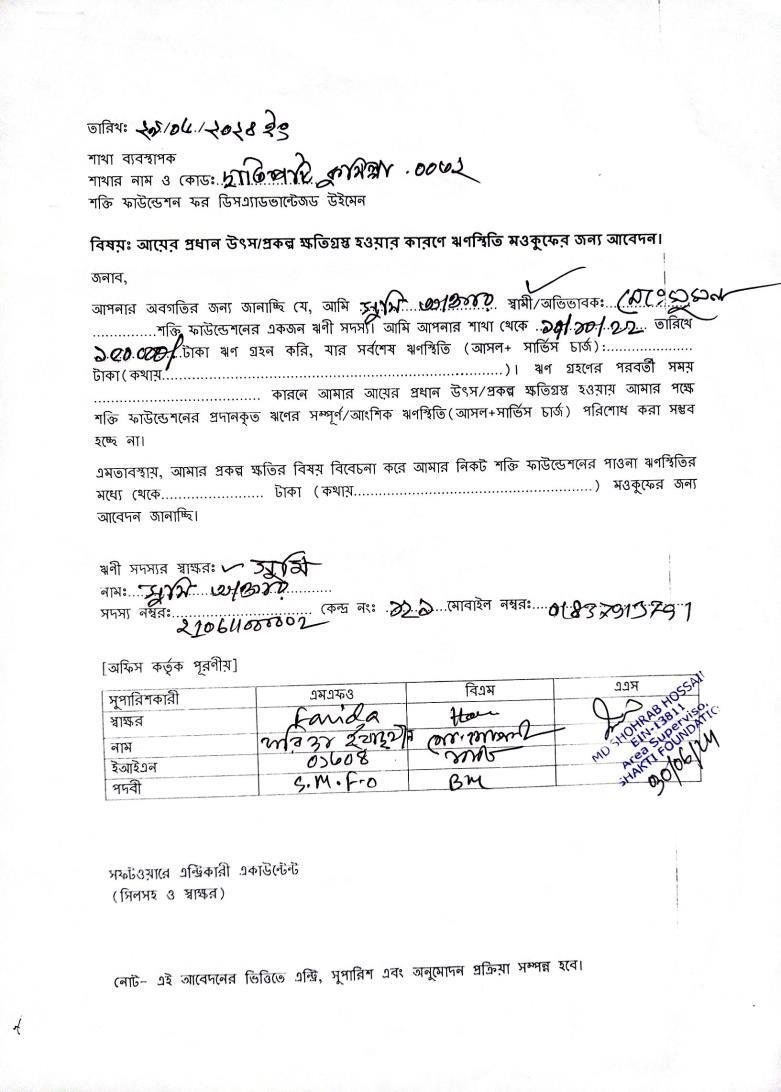 তারিখঃ ২৯/০৬/২০২৪ ইং
শাখা ব্যবস্থাপক
শাখার নাম ও কোডঃ কুমিল্লা . ০০৬২
শক্তি ফাউন্ডেশন ফর ডিসএ্যাডভান্টেজড উইমেন
বিষয়ঃ আয়ের প্রধান উৎস/প্রকল্প ক্ষতিগ্রস্ত হওয়ার কারণে ঋণস্থিতি মওকুফের জন্য আবেদন।
জনাব,
আপনার অবগতির জন্য জানাচ্ছি যে, আমি সুমি আক্তার স্বামী/অভিভাবকঃ
..............শক্তি ফাউন্ডেশনের একজন ঋণী সদস্য। আমি আপনার শাখা থেকে তারিখে
টাকা ঋণ গ্রহন করি, যার সর্বশেষ ঋণস্থিতি (আসল+ সার্ভিস চার্জ):..................
টাকা(কথায়..........................................................)। ঋণ গ্রহণের পরবর্তী সময়
.................................. কারনে আমার আয়ের প্রধান উৎস/প্রকল্প ক্ষতিগ্রস্ত হওয়ায় আমার পক্ষে
শক্তি ফাউন্ডেশনের প্রদানকৃত ঋণের সম্পূর্ণ/আংশিক ঋণস্থিতি(আসল+সার্ভিস চার্জ) পরিশোধ করা সম্ভব
হচ্ছে না।
এমতাবস্থায়, আমার প্রকল্প ক্ষতির বিষয় বিবেচনা করে আমার নিকট শক্তি ফাউন্ডেশনের পাওনা ঋণস্থিতির
মধ্যে থেকে..................... টাকা (কথায়.................................................) মওকুফের জন্য
আবেদন জানাচ্ছি।
ঋণী সদস্যর স্বাক্ষরঃ সুমি
নামঃ সুমি আক্তার
সদস্য নম্বরঃ............................ কেন্দ্র নং: মোবাইল নম্বরঃ 01837913791
[অফিস কর্তৃক পূরণীয়]
সুপারিশকারী এমএফও বিএম এএস
স্বাক্ষর Farida
নাম ফরিদা
ইআইএন 01608
পদবী S.M.F.O BM
MD SHOHRAB HOSSAIN
EIN-13811
Area Supervisor
SHAKTI FOUNDATION
30/06/24
সফটওয়ারে এন্ট্রিকারী একাউন্টেন্ট
(সিলসহ ও স্বাক্ষর)
নোট- এই আবেদনের ভিত্তিতে এন্ট্রি, সুপারিশ এবং অনুমোদন প্রক্রিয়া সম্পন্ন হবে।